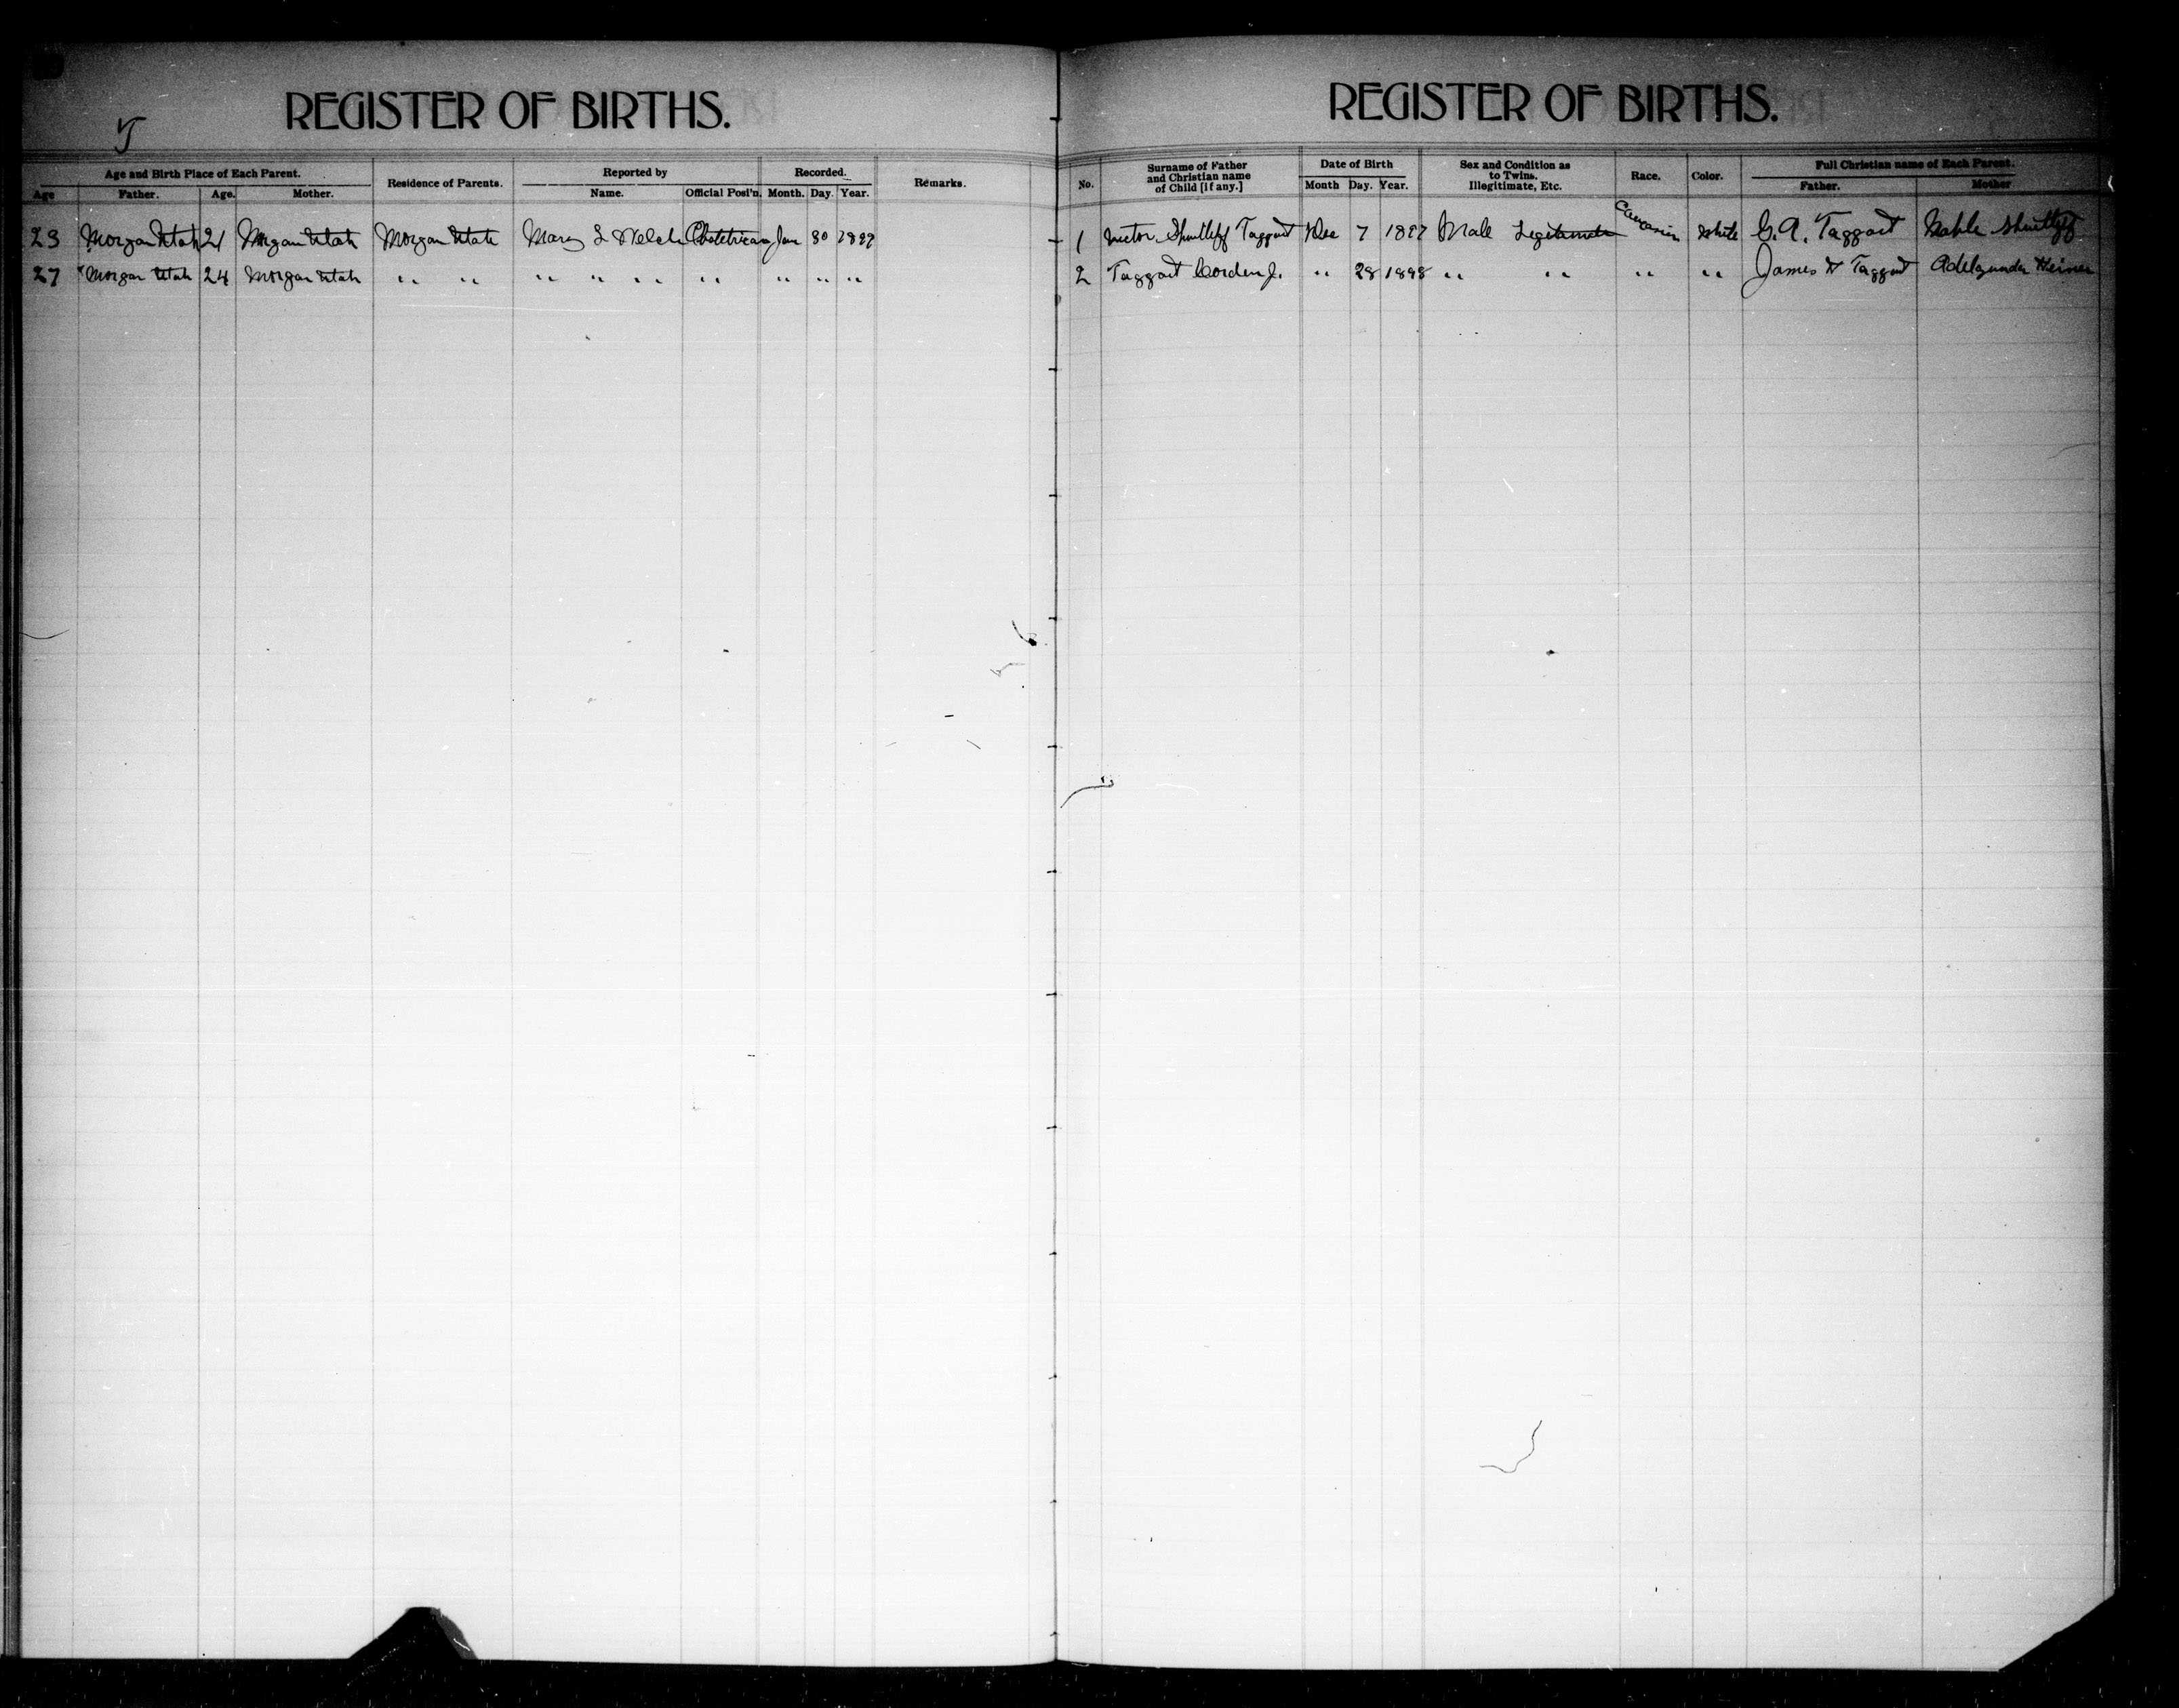 REGISTER OF BIRTHS.
T
Age and Birth Place of Each Parent.
Residence of Parents.
Reported by
Recorded.
Remarks.
Age Father. Age. Mother. Name. Official Posi'n. Month. Day. Year.
23 Morgan Utah 21 Morgan Utah Morgan Utah Mary L Welch Obstetrican Jan 30 1899
27 Morgan Utah 24 Morgan Utah " " " " " " " " " "
REGISTER OF BIRTHS.
No.
Surname of Father
and Christian name
of Child [if any.]
Date of Birth
Month Day. Year.
Sex and Condition as
to Twins.
Illegitimate, Etc.
Race.
Color.
Full Christian name of Each Parent.
Father. Mother
1 Victor Shurtleff Taggart Dec 7 1897 Male Legitimate Caucasian White G. A. Taggart Shurtleff
2 Taggart Corden J. " 28 1898 " " " " James H Taggart Adelgunda Heiner